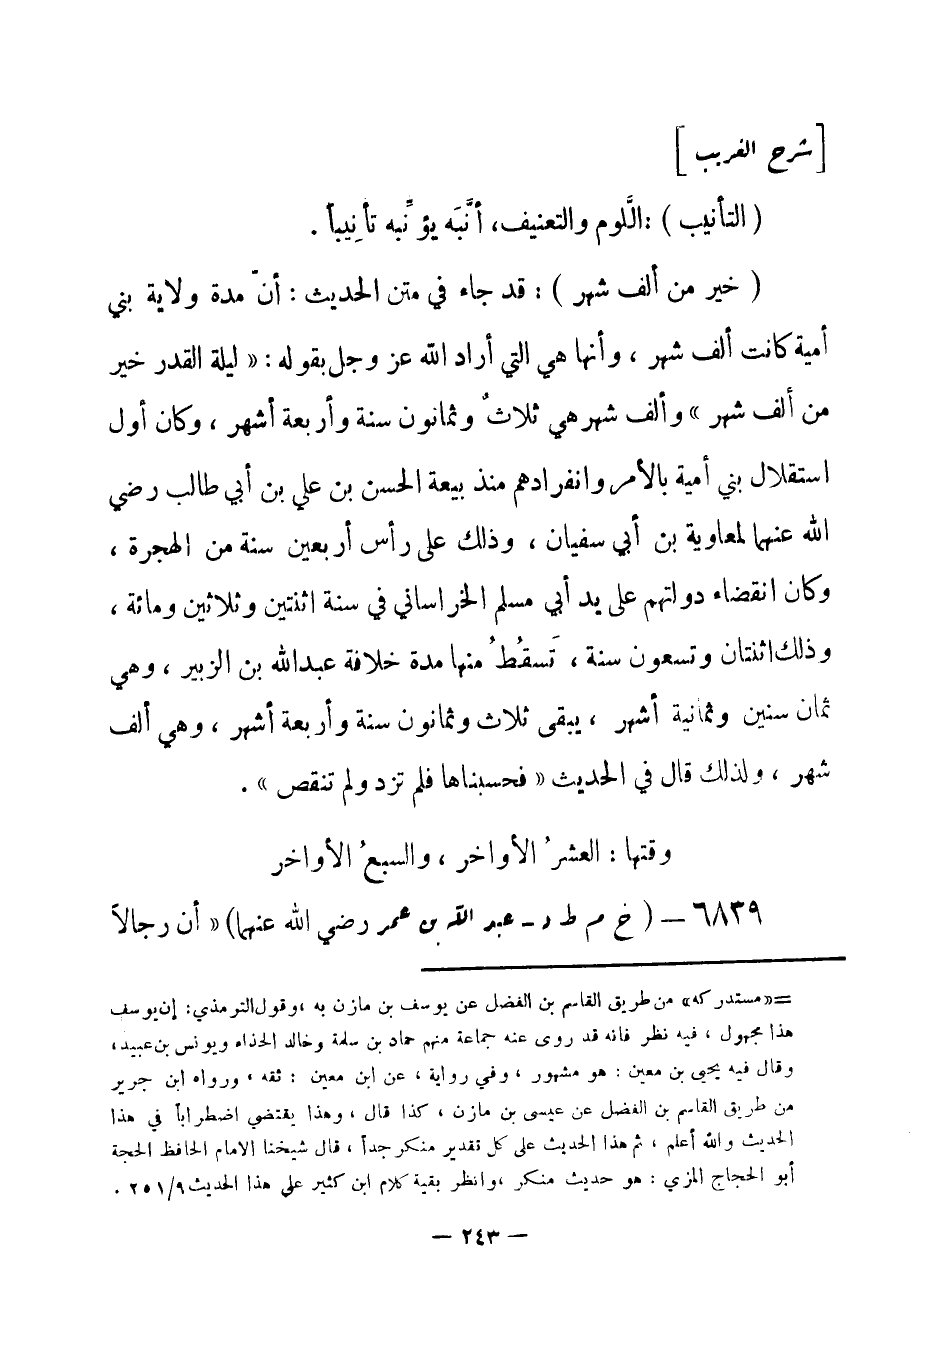 [ شرح الغريب ]
( التأنيب ) : اللَّوم والتعنيف، أنَّبَه يؤنِّبه تأنيباً .
( خير من ألف شهر ) : قد جاء في متن الحديث : أنّ مدة ولاية بني
أمية كانت ألف شهر ، وأنها هي التي أراد الله عز وجل بقوله : « ليلة القدر خير
من ألف شهر » وألف شهر هي ثلاثٌ وثمانون سنة وأربعة أشهر ، وكان أول
استقلال بني أمية بالأمر وانفرادهم منذ بيعة الحسن بن علي بن أبي طالب رضي
الله عنهما لمعاوية بن أبي سفيان ، وذلك على رأس أربعين سنة من الهجرة ،
وكان انقضاء دولتهم على يد أبي مسلم الخراساني في سنة اثنتين وثلاثين ومائة ،
وذلك اثنتان وتسعون سنة ، تَسقُطُ منها مدة خلافة عبدالله بن الزبير ، وهي
ثمان سنين وثمانية أشهر ، يبقى ثلاث وثمانون سنة وأربعة أشهر ، وهي ألف
شهر ، ولذلك قال في الحديث « فحسبناها فلم تزد ولم تنقص » .
وقتها : العشرُ الأواخر ، والسبعُ الأواخر
٦٨٣٩ – ( خ م ط د – عبد الله بن عمر رضي الله عنهما) « أن رجالاً
=«مستدركه» من طريق القاسم بن الفضل عن يوسف بن مازن به ،وقول الترمذي: إن يوسف
هذا مجهول ، فيه نظر فانه قد روى عنه جماعة منهم حماد بن سلمة وخالد الحذاء ويونس بن عبيد،
وقال فيه يحيى بن معين : هو مشهور ، وفي رواية ، عن ابن معين : ثقه ، ورواه ابن جرير
من طريق القاسم بن الفضل عن عيسى بن مازن ، كذا قال ، وهذا يقتضي اضطراباً في هذا
الحديث والله أعلم ، ثم هذا الحديث على كل تقدير منكر جداً ، قال شيخنا الامام الحافظ الحجة
أبو الحجاج المزي : هو حديث منكر ،وانظر بقية كلام ابن كثير على هذا الحديث ٢٥١/٩ .
– ٢٤٣ –